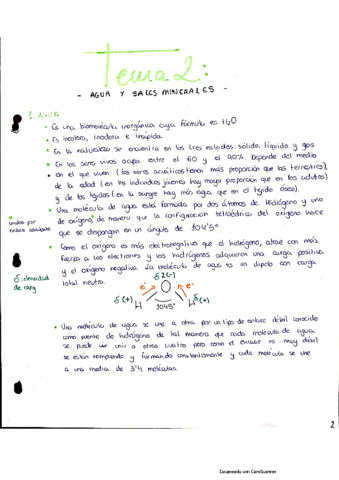 Tema 2:
- AGUA Y SALES MINERALES -
1. AGUA
• Es una biomolécula inorgánica cuya fórmula es H₂O.
• Es incolora, inodora e insípida.
• En la naturaleza se encuentra en los tres estados: sólido, líquido y gas
• En los seres vivos ocupa entre el 60 y el 90%. Depende del medio
• en el que viven (los seres acuáticos tienen más proporción que los terrestres),
de la edad (en los individuos jóvenes hay mayor proporción que en los adultos)
y de los tejidos (en la sangre hay más agua que en el tejido óseo).
• Una molécula de agua está formada por dos átomos de Hidrógeno y uno
de oxígeno de manera que la configuración tetraédrica del oxígeno hace
que se dispongan en un ángulo de 104'5º
unidos por
enlace covalente
• Como el oxígeno es más electronegativo que el hidrógeno, atrae con más
fuerza a los electrones y los hidrógenos adquieren una carga positiva
y el oxígeno negativa. La molécula de agua es un dipolo con carga
total neutra.
δ: densidad
de carg
δ 2(-)
e⁻ O e⁻
δ (+) H 104'5º H δ (+)
• Una molécula de agua se une a otra por un tipo de enlace débil conocido
como puente de hidrógeno de tal manera que cada molécula de agua
se puede unir a otras cuatro pero como el enlace es muy débil
se están rompiendo y formando constantemente y cada molécula se une
a una media de 3'4 moléculas.
2
Escaneado con CamScanner